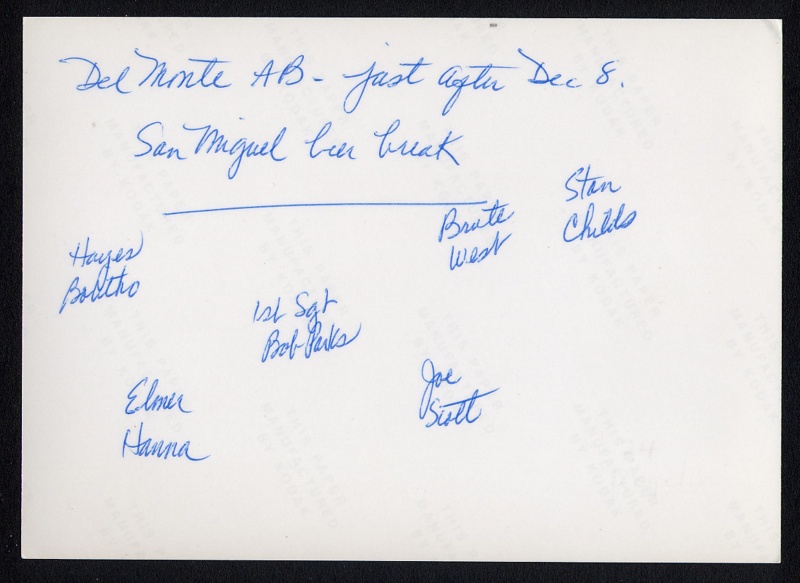 Del Monte AB - just after Dec 8.
San Miguel beer break
Stan
Childs
Brute
West
Hayes
Bolitho
1st Sgt
Bob Parks
Joe
Scott
Elmer
Hanna